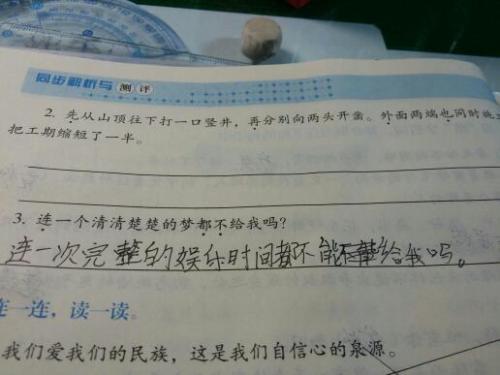 同步解析与测评
2. 先从山顶往下打一口竖井，再分别向两头开凿。外面两端也同时施工
把工期缩短了一半。
3. 连一个清清楚楚的梦都不给我吗？
连一次完整的娱乐时间都不能给我吗。
连一连，读一读。
我们爱我们的民族，这是我们自信心的泉源。